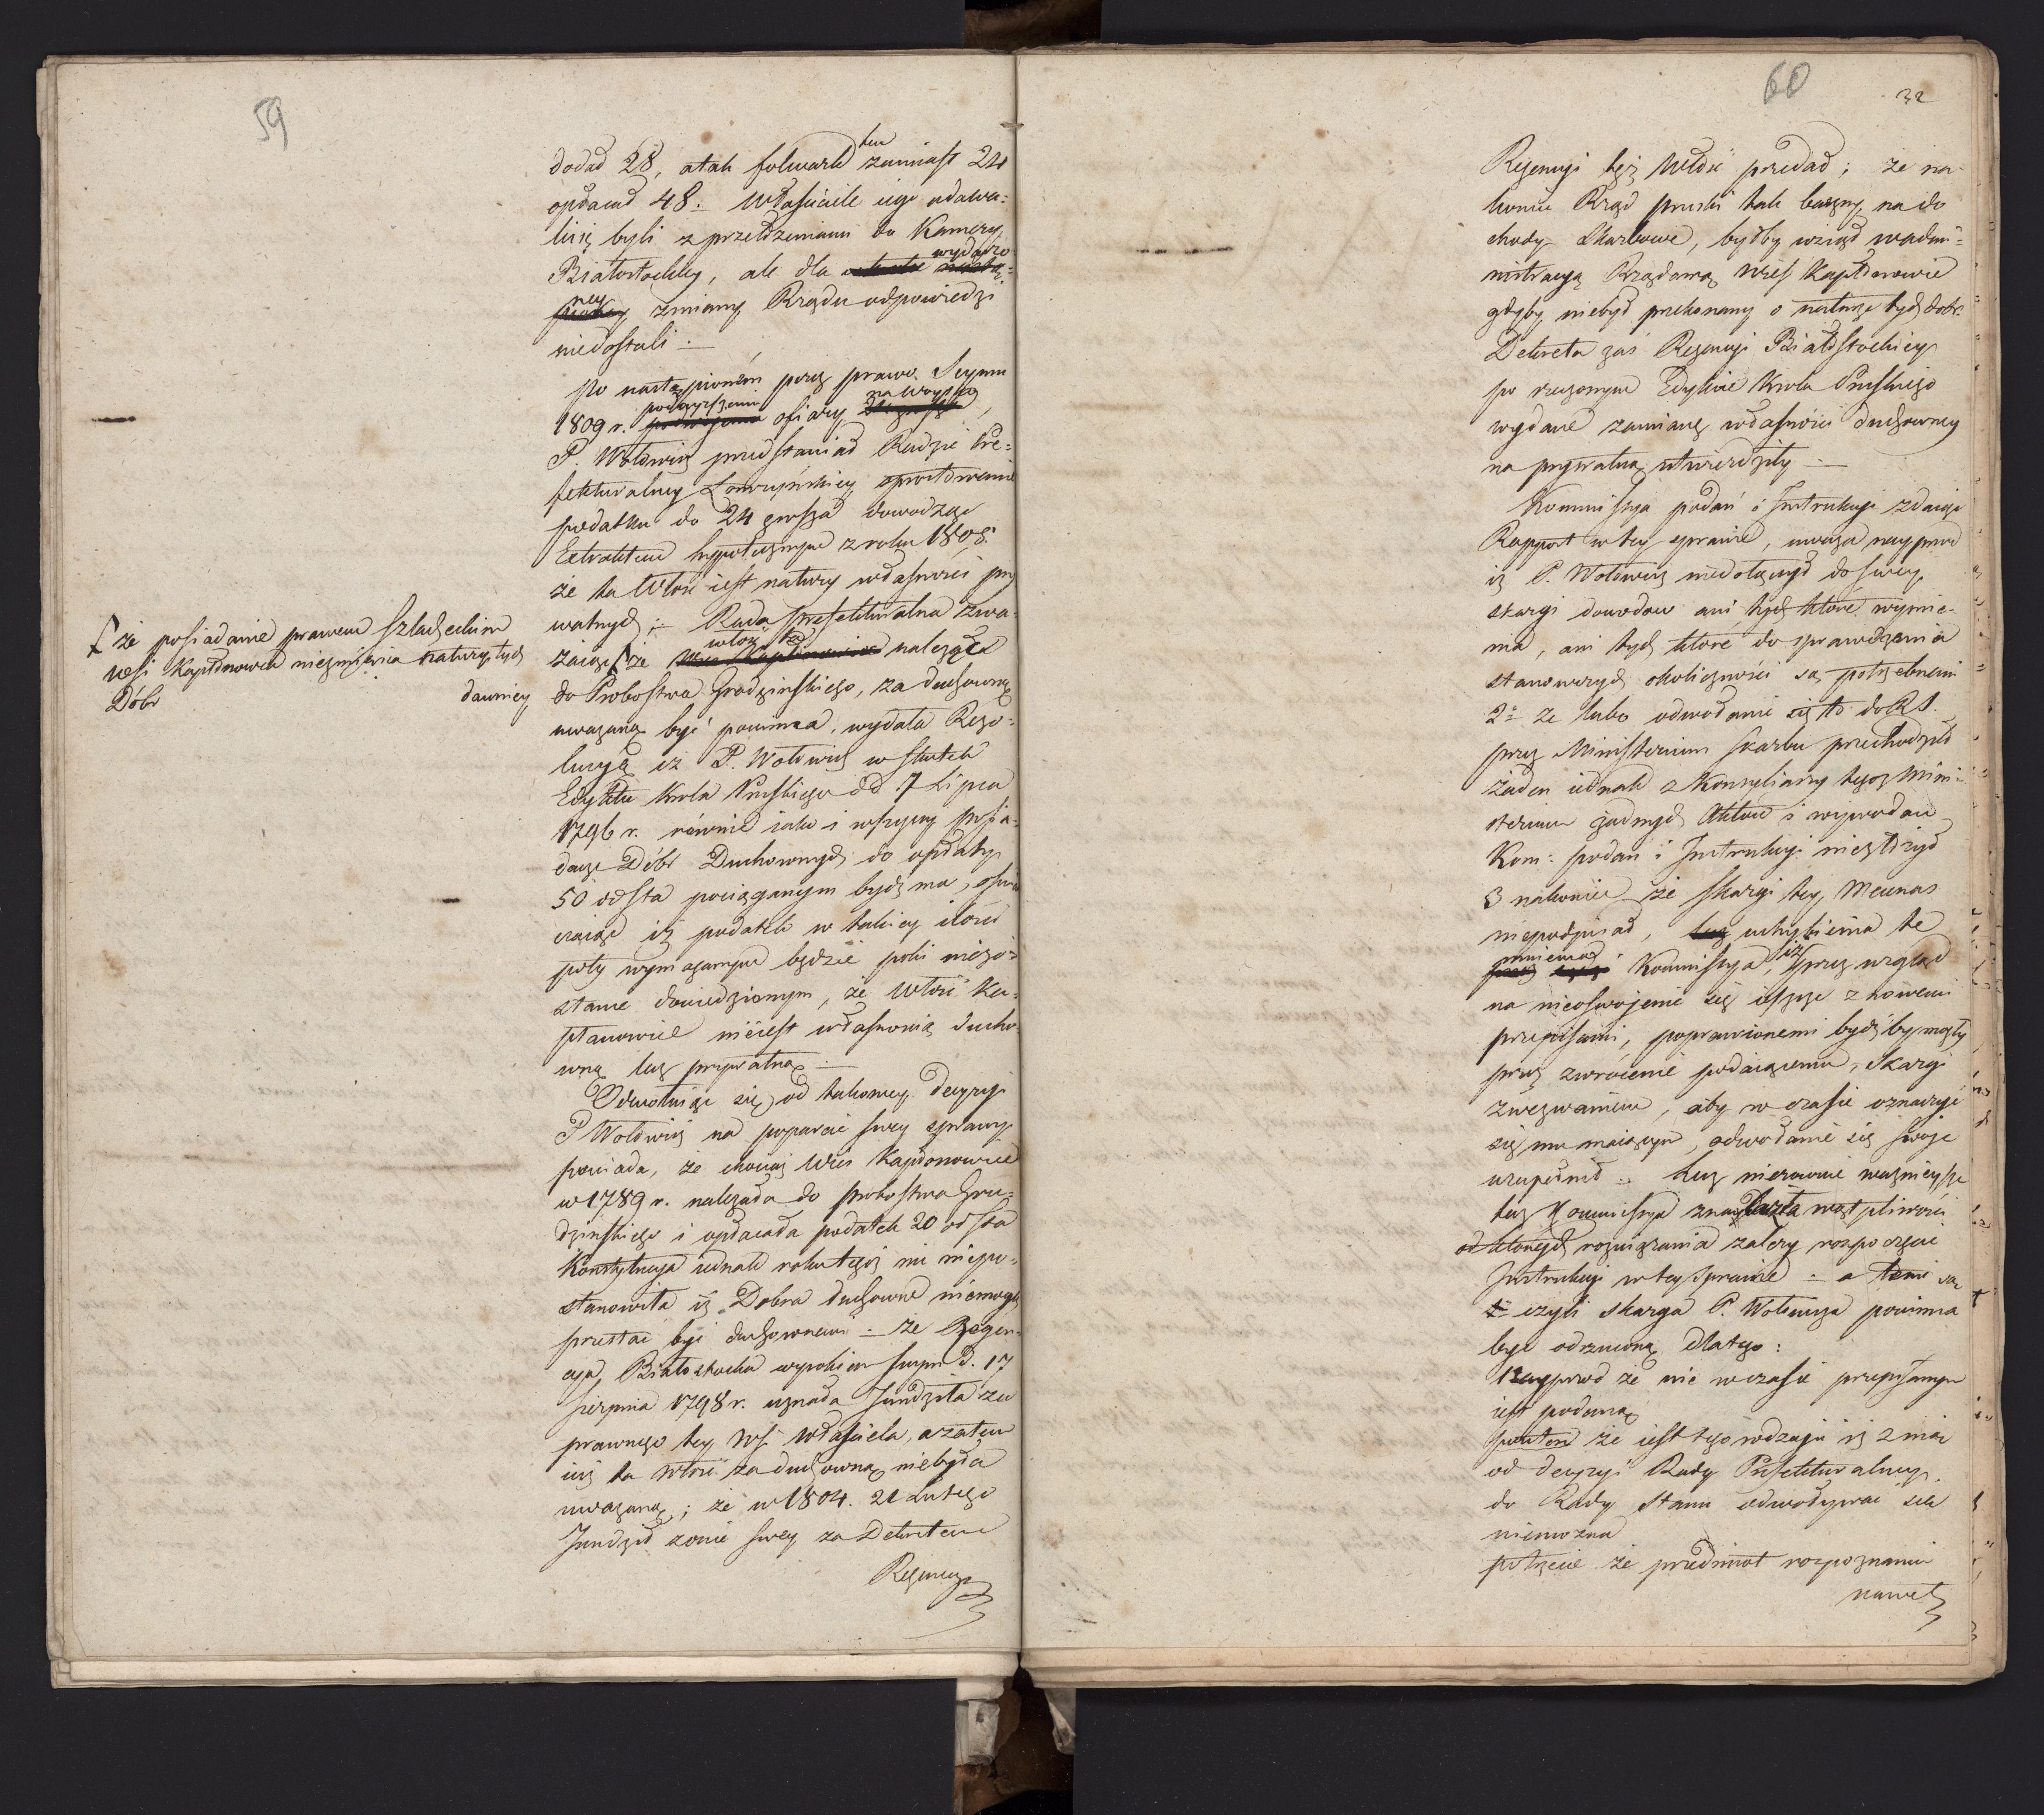 59
dodał 28, atak folwark ten zamiast 24
opłacał 48. – Właściciele iego udawa=
li się byli z przełożeniami do Kamery
Białostockiey, ale dla wydarzo=
ney zmiany Rządu odpowiedzi
niedostali. –
Po nastąpioném przez prawo Seymu
1809 r. podwyższeniu ofiary na Woysko,
P. Wołowicz przedstawiał Radzie Pre=
fekturalney Łomżyńskiey sprostowanie
podatku do 24 grosza dowodząc
Extraktem hypotecznym z roku 1808.
że ta Włość iest natury własności pry
watnych; – Rada Prefekturalna zwa=
żaiąc że włość ta należąca
że posiadanie prawem szlacheckim
wsi Kapłanowce niezmienia natury tych
Dóbr
dawniey
do Probostwa Grodzińskiego, za duchowną
uważaną być powinna, wydała Rezo=
lucyą iż P. Wołowicz w skutek
Edyktu Krola Pruskiego d.d. 7 Lipca
1796 r. równie iako i wszyscy posia=
dacze Dóbr Duchownych do opłaty
50 od sta pociąganym bydź ma, oświa
czaiąc iż podatek w takiey ilości
poty wymaganym będzie poki niezo=
stanie dowiedzionym, że Włość Ka=
płanowce nieiest własnością ducho
wną lecz prywatną –
Odwołuiąc się od takowey decyzyi
P Wołowicz na poparcie swey sprawy
powiada, że chociaż Wieś Kapłanowice
w 1789 r. należała do probostwa Gro=
dzińskiego i opłacała podatek 20 od sta
Konstytucya iednak roku tegoż nic niepo=
stanowiła iż Dobra duchowne niemogły
przestać być duchownemi – że Regen=
cya Białostocka wyrokiem swym d. 17
Sierpnia 1798 r. uznała Jundziłła za
prawnego tey Wsi właściciela, a zatem
iuż ta Włość za duchowną niebyła
uważaną; że w 1804. 21 Lutego
Jundziłł żonie swey za Dekretem
Regencyi
60
32
Regencyi teyż Włość przedał; że na=
koniec Rząd pruski tak baczny na do
chody Skarbowe, byłby wziął w admi=
nistracyą Rządową Wieś Kapłanowice
gdyby niebył przekonany o naturze tych dobr.
Dekreta zaś Regencyi Białostockiey
po rzeczonym Edykcie Krola Pruskiego
wydane zamianę własności duchowney
na prywatną utwierdziły –
Kommissya podań i Instrukcyi zdaiąc
Rapport w tey sprawie, uważa nayprzod
iż P. Wołowicz niedołączył do swey
skargi dowodow ani tych które wymie=
nia, ani tych które do sprawdzenia
stanowczych okoliczności są potrzebnemi
2º że lubo odwołanie się to do R S.
przez Ministerium Skarbu przechodziło
żaden iednak z Konsyliarzy tegoż Mini=
sterium żadnych Aktow i wywodow
Kom: podań i Instrukcyi niezłożył
3 nakoniec że skargi tey Mecenas
niepodpisał, uchybienia te
mniemać Kommissya, iż przez wzgląd
na nieoswojenie się ieszcze z nowemi
przepisami, poprawionemi bydźby mogły
przez zwrócenie podaiącemu, skargi
z wezwaniem, aby w czasie oznaczyć
się mu maiącym, odwołanie się swoje
uzupełnił. – Lecz nierownie ważnieysze
też Kommissya znalazła wątpliwości
od których rozwiązania zależy rozpoczęcie
Instrukcyi w tey Sprawie – a temi są
1º czyli skarga P. Wołowicza powinna
bydź odrzuconą dlatego:
Nayprzod że nie w czasie przepisanym
iest podaną
powtore że iest tego rodzaju iż z nią
od decyzyi Rady Prefekturalney
do Rady Stanu odwoływać się
niemożna
potrzecie że przedmiot rozpoznania
nawet